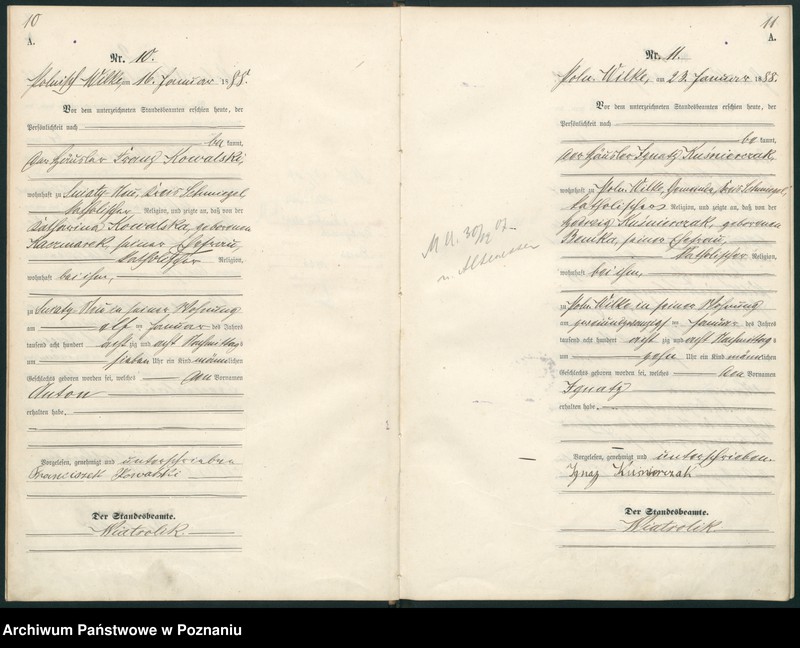 10
A.
Nr. 10.
Polnisch Wilke, am 16. Januar 1888.
Vor dem unterzeichneten Standesbeamten erschien heute, der
Persönlichkeit nach
be kannt,
der Häusler Franz Kowalski,
wohnhaft zu Swiaty-Hau, Kreis Schmiegel
katholischer Religion, und zeigte an, daß von der
Katharina Kowalska, geborenen
Kaczmarek, seiner Ehefrau,
katholischer Religion,
wohnhaft bei ihm,
zu Swiaty Hau in seiner Wohnung
am elf ten Januar des Jahres
tausend acht hundert acht zig und acht Nachmittags
um sieben Uhr ein Kind männlichen
Geschlechts geboren worden sei, welches den Vornamen
Anton
erhalten habe.
Vorgelesen, genehmigt und unterschrieben
Franciszek Kowalski
Der Standesbeamte.
Wiatrolik.
M U. 30/12 07
11
A.
Nr. 11.
Poln. Wilke, am 23. Januar 1888.
Vor dem unterzeichneten Standesbeamten erschien heute, der
Persönlichkeit nach
be kannt,
der Häusler Ignatz Kuśnierczak,
wohnhaft zu Poln. Wilke, Kreis Schmiegel,
katholischer Religion, und zeigte an, daß von der
Hedwig Kuśnierczak, geborenen
seiner Ehefrau,
katholischer Religion,
wohnhaft bei ihm,
zu Poln. Wilke in seiner Wohnung
am ten Januar des Jahres
tausend acht hundert acht zig und acht Nachmittags
um zehn Uhr ein Kind männlichen
Geschlechts geboren worden sei, welches den Vornamen
Ignatz
erhalten habe.
Vorgelesen, genehmigt und unterschrieben.
Ignaz Kuśnierczak
Der Standesbeamte.
Wiatrolik.
Archiwum Państwowe w Poznaniu